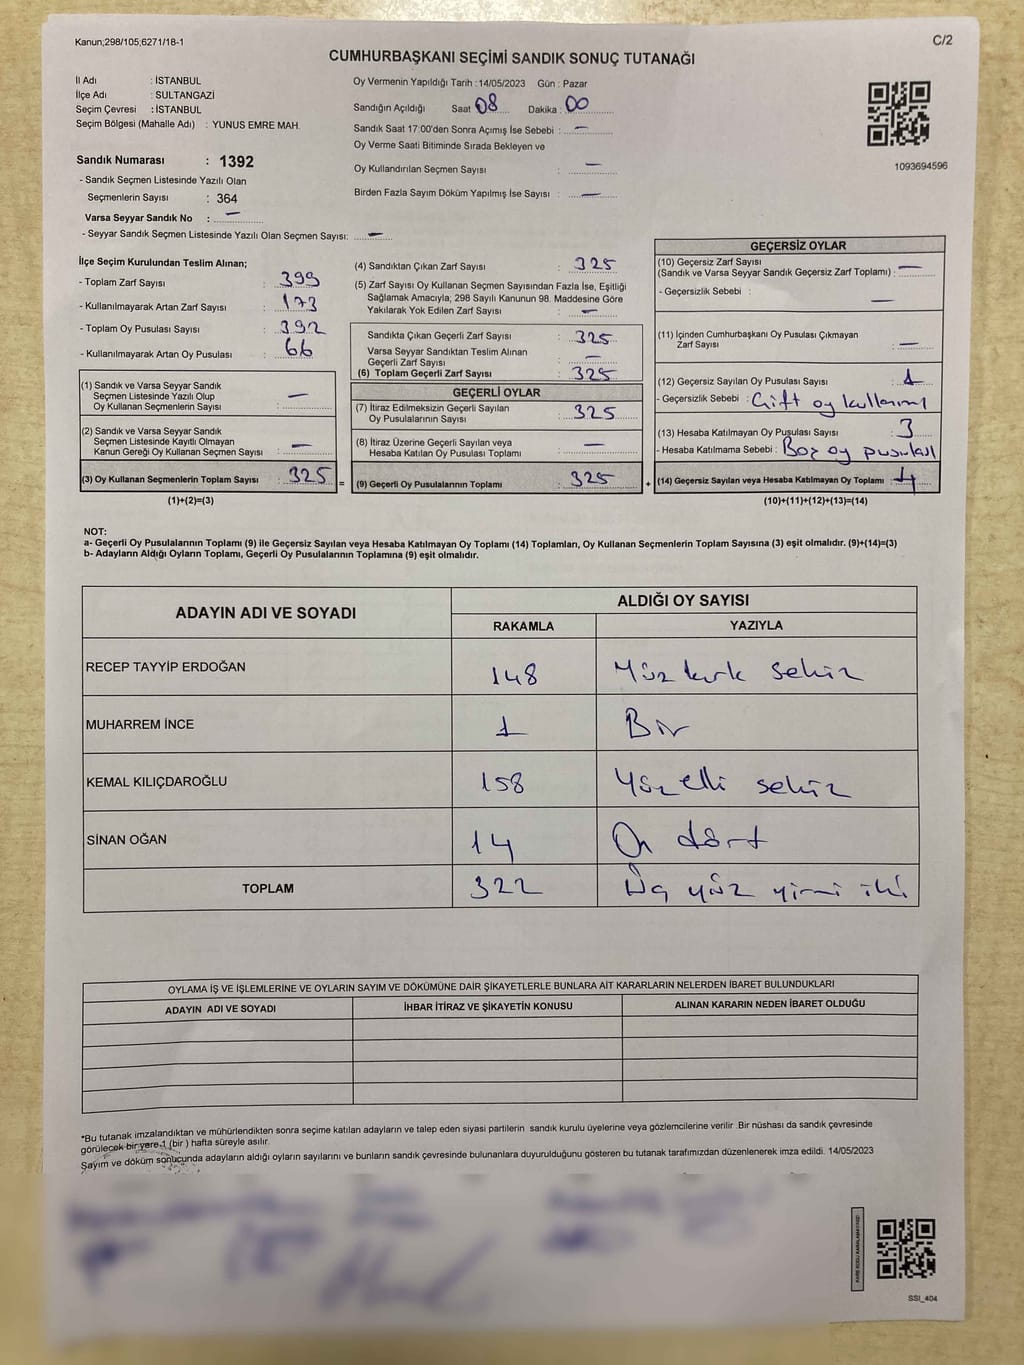 Kanun;298/105;6271/18-1
C/2
CUMHURBAŞKANI SEÇİMİ SANDIK SONUÇ TUTANAĞI
İl Adı : İSTANBUL
İlçe Adı : SULTANGAZİ
Seçim Çevresi : İSTANBUL
Seçim Bölgesi (Mahalle Adı) : YUNUS EMRE MAH.
Sandık Numarası : 1392
- Sandık Seçmen Listesinde Yazılı Olan
Seçmenlerin Sayısı : 364
Varsa Seyyar Sandık No : —
- Seyyar Sandık Seçmen Listesinde Yazılı Olan Seçmen Sayısı: —
Oy Vermenin Yapıldığı Tarih : 14/05/2023 Gün : Pazar
Sandığın Açıldığı Saat 08 Dakika : 00
Sandık Saat 17:00'den Sonra Açımış İse Sebebi : —
Oy Verme Saati Bitiminde Sırada Bekleyen ve
Oy Kullandırılan Seçmen Sayısı : —
Birden Fazla Sayım Döküm Yapılmış İse Sayısı : —
1093694596
İlçe Seçim Kurulundan Teslim Alınan;
- Toplam Zarf Sayısı : 399
- Kullanılmayarak Artan Zarf Sayısı : 173
- Toplam Oy Pusulası Sayısı : 392
- Kullanılmayarak Artan Oy Pusulası : 66
(1) Sandık ve Varsa Seyyar Sandık
Seçmen Listesinde Yazılı Olup
Oy Kullanan Seçmenlerin Sayısı : —
(2) Sandık ve Varsa Seyyar Sandık
Seçmen Listesinde Kayıtlı Olmayan
Kanun Gereği Oy Kullanan Seçmen Sayısı : —
(3) Oy Kullanan Seçmenlerin Toplam Sayısı : 325
(1)+(2)=(3)
(4) Sandıktan Çıkan Zarf Sayısı : 325
(5) Zarf Sayısı Oy Kullanan Seçmen Sayısından Fazla İse, Eşitliği
Sağlamak Amacıyla; 298 Sayılı Kanunun 98. Maddesine Göre
Yakılarak Yok Edilen Zarf Sayısı : —
Sandıkta Çıkan Geçerli Zarf Sayısı : 325
Varsa Seyyar Sandıktan Teslim Alınan
Geçerli Zarf Sayısı : —
(6) Toplam Geçerli Zarf Sayısı : 325
GEÇERLİ OYLAR
(7) İtiraz Edilmeksizin Geçerli Sayılan
Oy Pusulalarının Sayısı : 325
(8) İtiraz Üzerine Geçerli Sayılan veya
Hesaba Katılan Oy Pusulası Toplamı : —
= (9) Geçerli Oy Pusulalarının Toplamı : 325 +
GEÇERSİZ OYLAR
(10) Geçersiz Zarf Sayısı
(Sandık ve Varsa Seyyar Sandık Geçersiz Zarf Toplamı) : —
- Geçersizlik Sebebi : —
(11) İçinden Cumhurbaşkanı Oy Pusulası Çıkmayan
Zarf Sayısı : —
(12) Geçersiz Sayılan Oy Pusulası Sayısı : 1
- Geçersizlik Sebebi : Çift oy kullanımı
(13) Hesaba Katılmayan Oy Pusulası Sayısı : 3
- Hesaba Katılmama Sebebi : Boş oy pusulası
(14) Geçersiz Sayılan veya Hesaba Katılmayan Oy Toplamı : 4
(10)+(11)+(12)+(13)=(14)
NOT:
a- Geçerli Oy Pusulalarının Toplamı (9) ile Geçersiz Sayılan veya Hesaba Katılmayan Oy Toplamı (14) Toplamları, Oy Kullanan Seçmenlerin Toplam Sayısına (3) eşit olmalıdır. (9)+(14)=(3)
b- Adayların Aldığı Oyların Toplamı, Geçerli Oy Pusulalarının Toplamına (9) eşit olmalıdır.
ADAYIN ADI VE SOYADI
ALDIĞI OY SAYISI
RAKAMLA YAZIYLA
RECEP TAYYİP ERDOĞAN 148 Yüz kırk sekiz
MUHARREM İNCE 1 Bir
KEMAL KILIÇDAROĞLU 158 Yüz elli sekiz
SİNAN OĞAN 14 On dört
TOPLAM 322 Üç yüz yirmi iki
OYLAMA İŞ VE İŞLEMLERİNE VE OYLARIN SAYIM VE DÖKÜMÜNE DAİR ŞİKAYETLERLE BUNLARA AİT KARARLARIN NELERDEN İBARET BULUNDUKLARI
ADAYIN ADI VE SOYADI İHBAR İTİRAZ VE ŞİKAYETİN KONUSU ALINAN KARARIN NEDEN İBARET OLDUĞU
*Bu tutanak imzalandıktan ve mühürlendikten sonra seçime katılan adayların ve talep eden siyasi partilerin sandık kurulu üyelerine veya gözlemcilerine verilir .Bir nüshası da sandık çevresinde
görülecek bir yere 1 (bir ) hafta süreyle asılır.
Sayım ve döküm sonucunda adayların aldığı oyların sayılarını ve bunların sandık çevresinde bulunanlara duyurulduğunu gösteren bu tutanak tarafımızdan düzenlenerek imza edildi. 14/05/2023
SSI_404